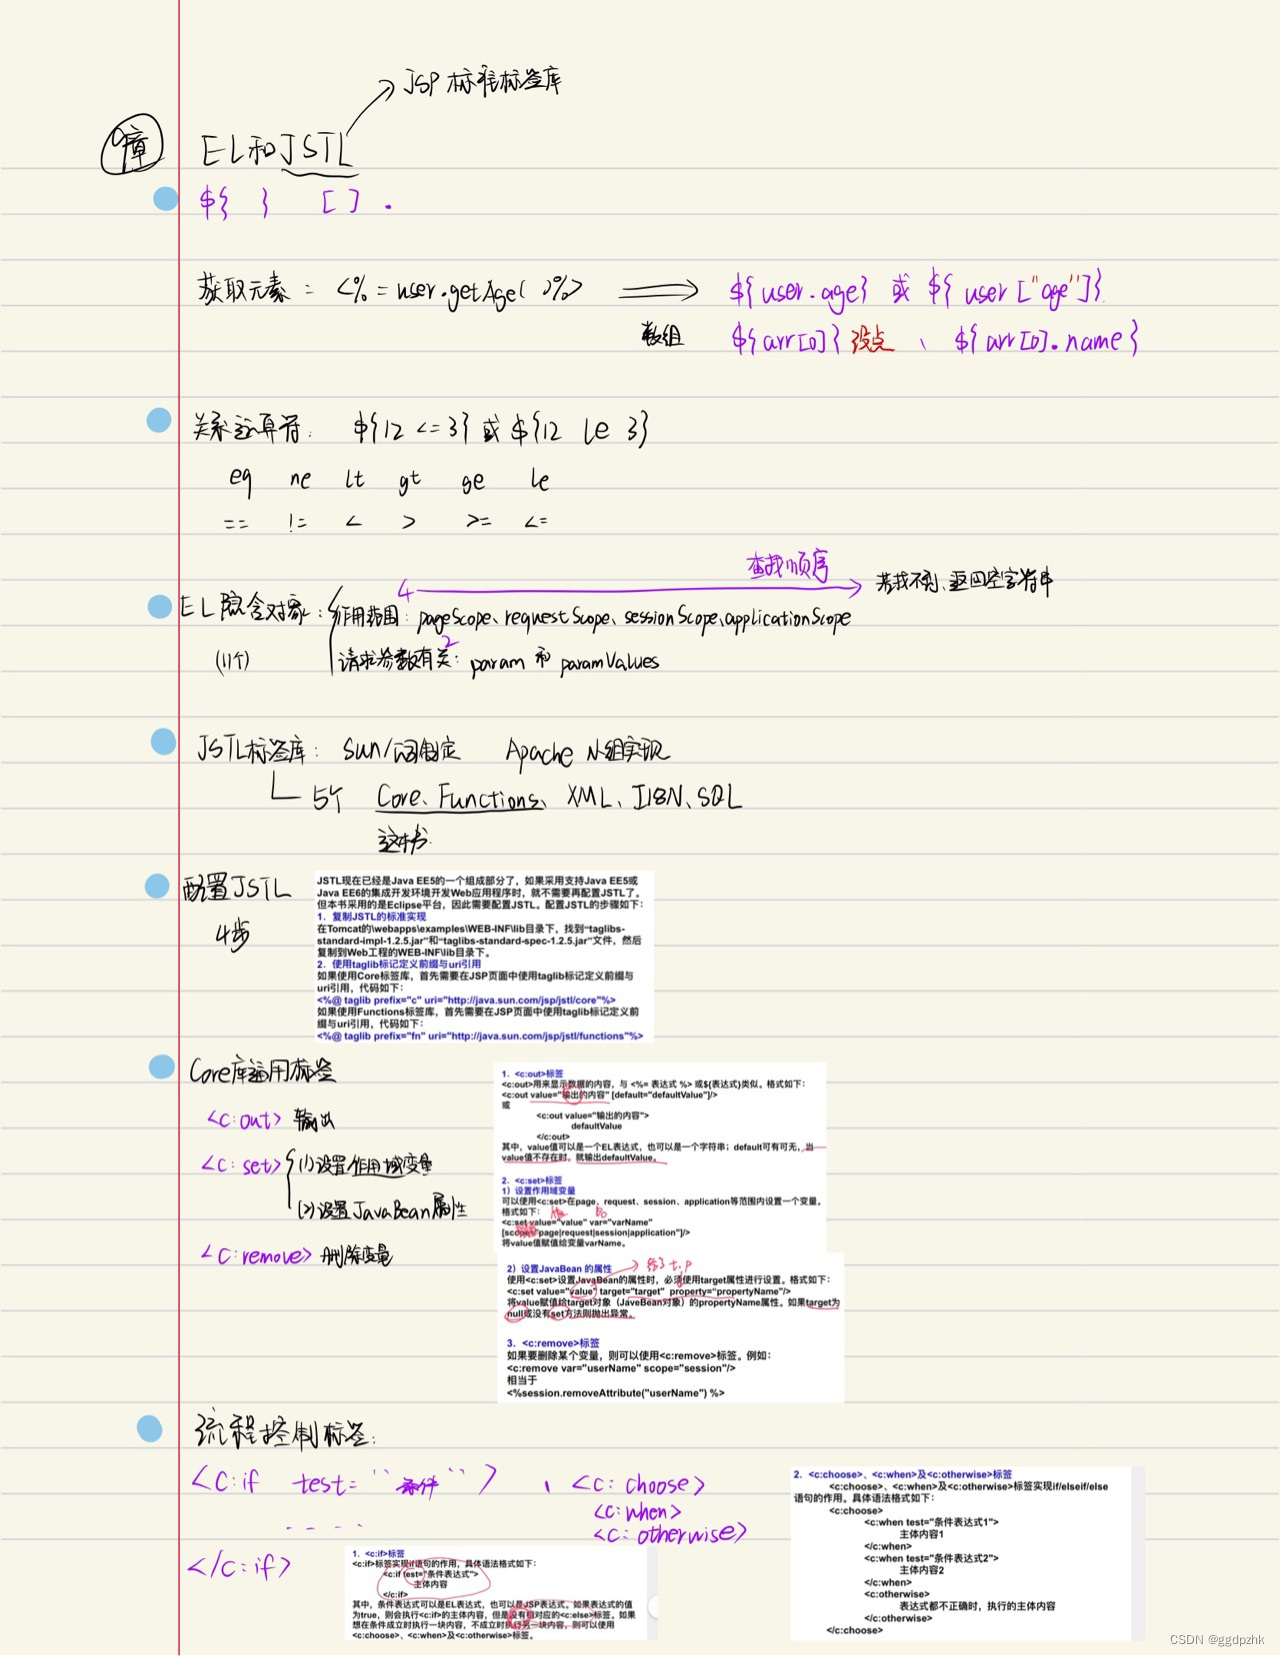 JSP 标准标签库
9章 EL和JSTL
${ } [ ] .
获取元素: <%=user.getAge( )%> ${user.age} 或 ${user["age"]}
数组 ${arr[0]} 没点 、 ${arr[0].name}
关系运算符: ${12 <= 3} 或 ${12 le 3}
eq ne lt gt ge le
== != < > >= <=
查找顺序
4 若找不到、返回空字符串
EL隐含对象: 作用范围: pageScope、requestScope、sessionScope、applicationScope
2
(11个) 请求参数有关: param 和 paramValues
JSTL标签库: Sun公司制定 Apache 小组实现
5个 Core、Functions、XML、I18N、SQL
这本书
配置JSTL
4步
JSTL现在已经是Java EE5的一个组成部分了，如果采用支持Java EE5或
Java EE6的集成开发环境开发Web应用程序时，就不需要再配置JSTL了。
但本书采用的是Eclipse平台，因此需要配置JSTL。配置JSTL的步骤如下：
1．复制JSTL的标准实现
在Tomcat的\webapps\examples\WEB-INF\lib目录下，找到“taglibs-
standard-impl-1.2.5.jar”和“taglibs-standard-spec-1.2.5.jar”文件，然后
复制到Web工程的WEB-INF\lib目录下。
2．使用taglib标记定义前缀与uri引用
如果使用Core标签库，首先需要在JSP页面中使用taglib标记定义前缀与
uri引用，代码如下：
<%@ taglib prefix="c" uri="http://java.sun.com/jsp/jstl/core"%>
如果使用Functions标签库，首先需要在JSP页面中使用taglib标记定义前
缀与uri引用，代码如下：
<%@ taglib prefix="fn" uri="http://java.sun.com/jsp/jstl/functions"%>
Core库通用标签
<c:out> 输出
<c:set> (1)设置作用域变量
(2)设置JavaBean属性
<c:remove> 删除变量
1．<c:out>标签
<c:out>用来显示数据的内容，与 <%= 表达式 %> 或${表达式}类似。格式如下：
<c:out value="输出的内容" [default="defaultValue"]/>
或
<c:out value="输出的内容">
defaultValue
</c:out>
其中，value值可以是一个EL表达式，也可以是一个字符串；default可有可无，当
value值不存在时，就输出defaultValue。
2．<c:set>标签
1）设置作用域变量
可以使用<c:set>在page、request、session、application等范围内设置一个变量。
格式如下： 值 名
<c:set value="value" var="varName"
[scope="page|request|session|application"]/>
将value值赋值给变量varName。
2）设置JavaBean 的属性 给了t.p
使用<c:set>设置JavaBean的属性时，必须使用target属性进行设置。格式如下：
<c:set value="value" target="target" property="propertyName"/>
将value赋值给target对象（JaveBean对象）的propertyName属性。如果target为
null或没有set方法则抛出异常。
3．<c:remove>标签
如果要删除某个变量，则可以使用<c:remove>标签。例如：
<c:remove var="userName" scope="session"/>
相当于
<%session.removeAttribute("userName") %>
流程控制标签:
<c:if test="条件"> 、 <c:choose>
<c:when>
<c:otherwise>
</c:if>
1．<c:if>标签
<c:if>标签实现if语句的作用，具体语法格式如下：
<c:if test="条件表达式">
主体内容
</c:if>
其中，条件表达式可以是EL表达式，也可以是JSP表达式。如果表达式的值
为true，则会执行<c:if>的主体内容，但是没有相对应的<c:else>标签。如果
想在条件成立时执行一块内容，不成立时执行另一块内容，则可以使用
<c:choose>、<c:when>及<c:otherwise>标签。
2．<c:choose>、<c:when>及<c:otherwise>标签
<c:choose>、<c:when>及<c:otherwise>标签实现if/elseif/else
语句的作用。具体语法格式如下：
<c:choose>
<c:when test="条件表达式1">
主体内容1
</c:when>
<c:when test="条件表达式2">
主体内容2
</c:when>
<c:otherwise>
表达式都不正确时，执行的主体内容
</c:otherwise>
</c:choose>
CSDN @ggdpzhk